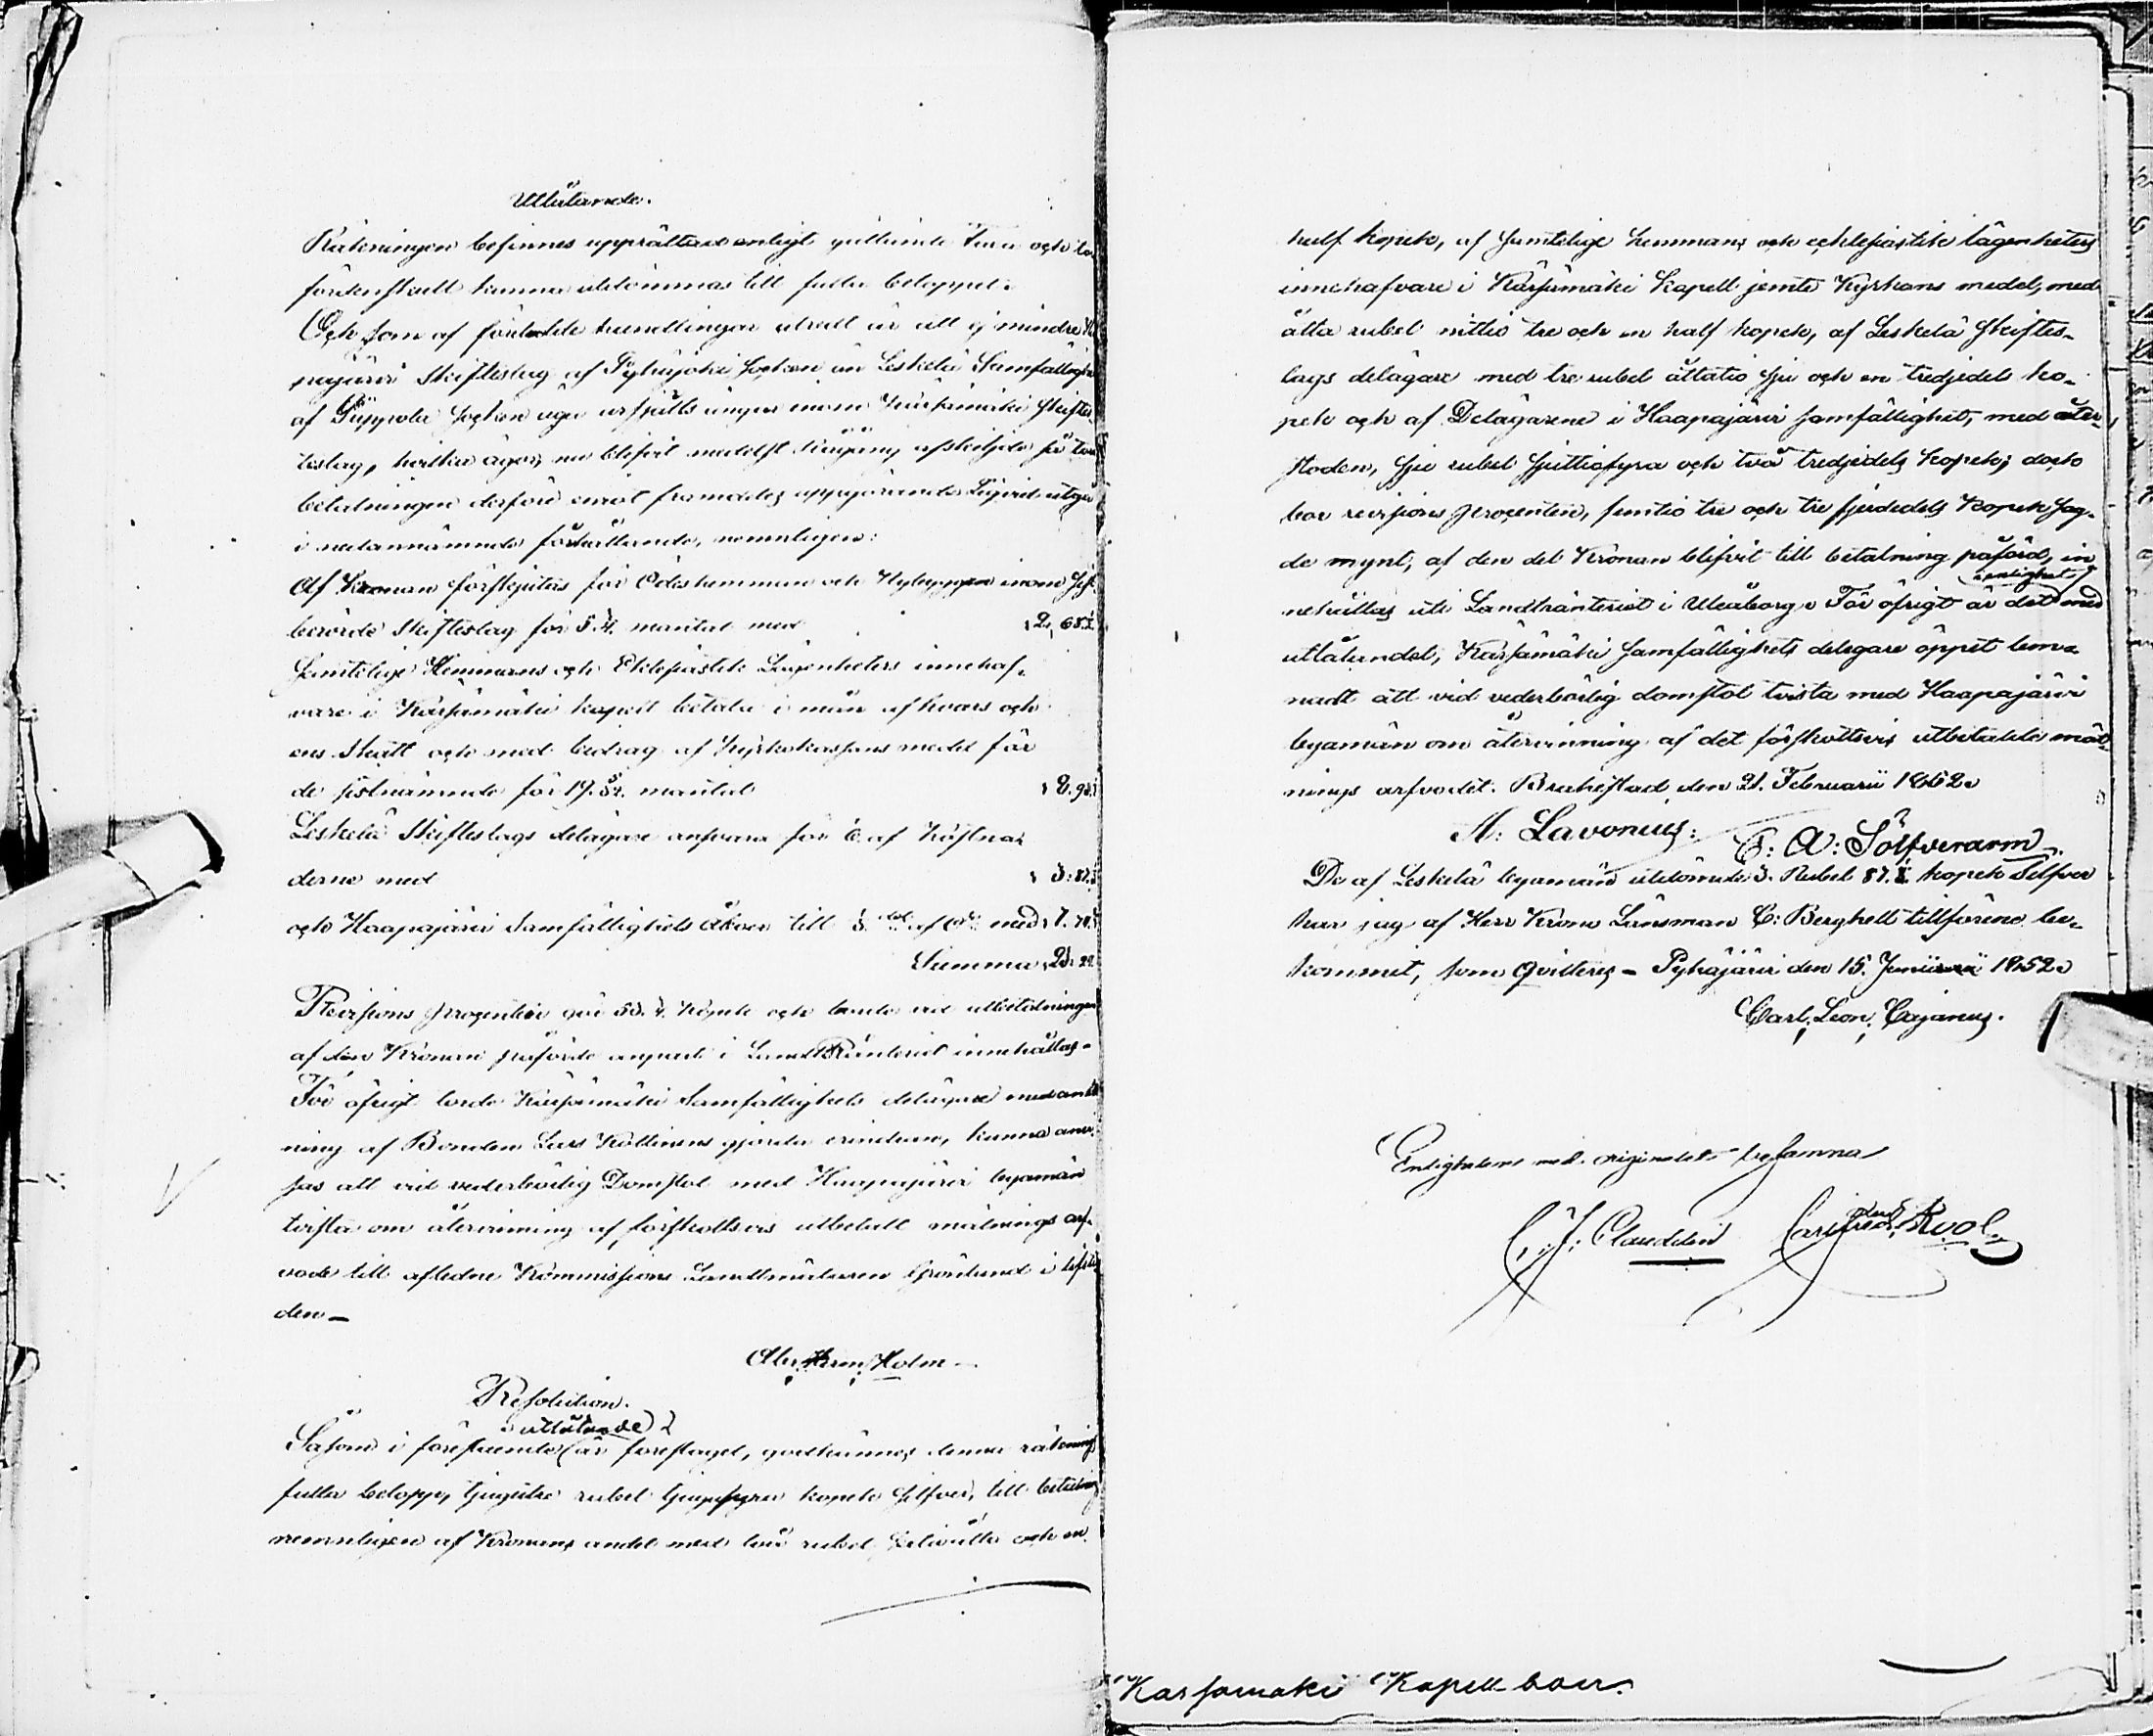 Utlåtande.
Räkningen befinnes upprättad enligt gällande taxa och
fördenskull kunna utdömmas till fulla beloppet.
Och som af företedde handlingar utredt är att ej mindre
pajärvi Skifteslag af Pyhäjoki Socken än Leskelä Samfällighet
af Piippola Socken ega urfjälls ängar inom Kärsämäki Skiftes
teslag, hvilka ägor, nu blifvit medelst Rågång afskiljde så
betalningen derföre emot framdeles uppgörande utgå
i nedannämnde förhållande, nemnligen:
Af Kronan förskjutas för Ödeshemman och Nybyggen inom
berörde Skifteslag för mantal med 2, 68.½
Samtelige Hemmans och Eklesiastik Lägenheters innehaf-
vare i Kärsämäki kapell betala i mån af hvars och
ens Skatt och med bidrag af Kyrkokassans medel för
de sistnämnde för 19. mantal 8. 93.½
Leskelä Skifteslags delägare ansvara för af Kostna-
derne med 3: 87.
och Haapajärvi Samfällighets åboer till af med 7. 74.
Summa 23. 24.
Revisions procenten gör 53.¾. kopek och borde vid utbetalningen
af den Kronan påförde anpart i Landtränteriet innehållas -
För öfrigt torde Kärsämäki Samfällighets delägare med anled
ning af Bonden Lars gjorda erindran, kunna anvi-
sas att vid vederbörlig Domstol med Haapajärvi byamän
tvista om återvinning af förskottsvis utbetalt mätnings arf-
vode till afledne Kommissions Landtmätaren Grönlund i lifsti
den -
Abr. Herm. Holm -
Resolution.
utlåtande
Såsom i förestående är föreslaget, godkännes denna räknings
fulla belopp, tjugutre rubel tjugufyra kopek Silfver, till betalning
nemnligen af Kronans andel med två rubel Sextioåtta och en
half kopek, af samtelige hemmans och ecklesiastik lägenheters
innehafvare i Kärsämäki Kapell jemte Kyrkans medel, med
åtta rubel nittio tre och en half kopek, af Leskelä Skiftes-
lags delägare med tre rubel åttatio sju och en tredjedels ko-
pek och af Delägarene i Haapajärvi samfällighet, med åter-
stoden, sju rubel sjuttiofyra och två tredjedels kopek; dock
bör revisions procenten, femtio tre och tre fjerdedels kopek sag-
de mynt, af den del Kronan blifvit till betalning påförd, in
nehållas uti Landtränteriet i Uleåborg. För öfrigt är det med
enlighet
utlåtandet, Kärsämäki samfällighets delegare öppet lem-
nadt att vid vederbörlig domstol tvista med Haapajärvi
byamän om återvinning af det förskottsvis utbetalde mät-
nings arfvodet. Brahestad den 21. Februarii 1852.
A: Lavonius: E: A: Sölfverarm.
De af Leskelä byamän utdömde 3. Rubel 87. kopek Silfver
har jag af Herr Krono Länsman C: Berghell tillförene be-
kommit, som qvitteras - Pyhäjärvi den 15. Junii 1852.
Carl. Leon. Cajanus.
Enligheten med originalet besanna
C. J. Claudelin Carl Fred. Rvol.
Karsamaki Kapell boer.